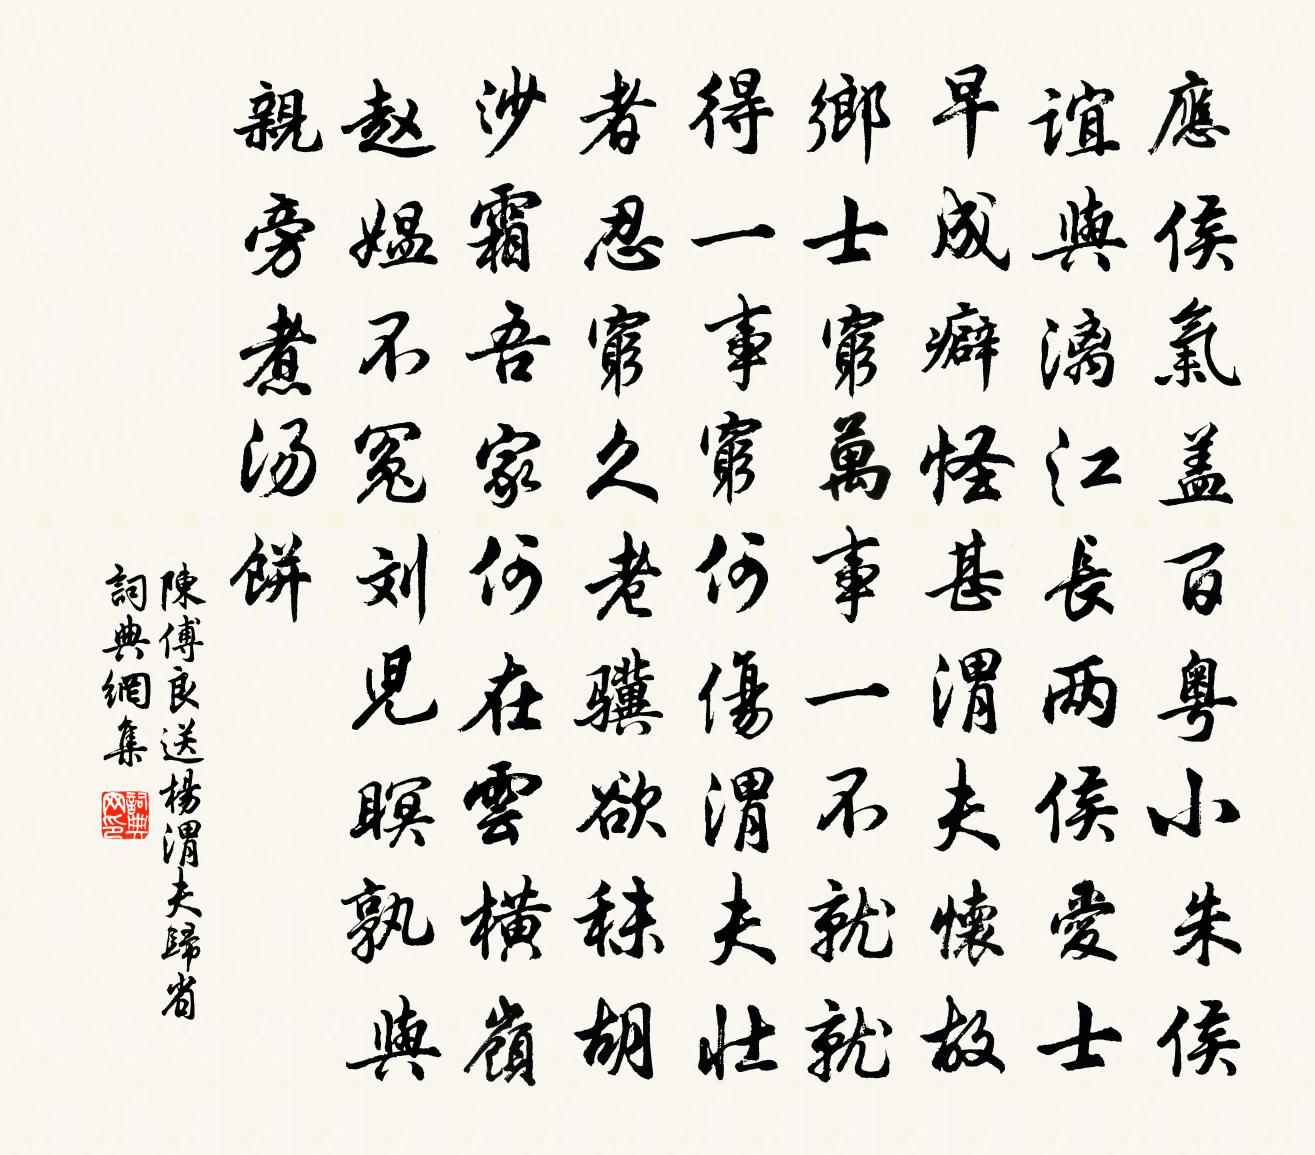 應侯氣盖百粵小朱侯
誼與漓江長两侯愛士
早成癖怪甚渭夫懷故
鄉士窮萬事一不就就
得一事窮何傷渭夫壮
者忍窮久老驥欲秣胡
沙霜吾家何在雲橫嶺
赵媼不冤刘兒瞑孰與
親旁煮汤餅
陳傅良送楊渭夫歸省
詞典網集
詞典网印